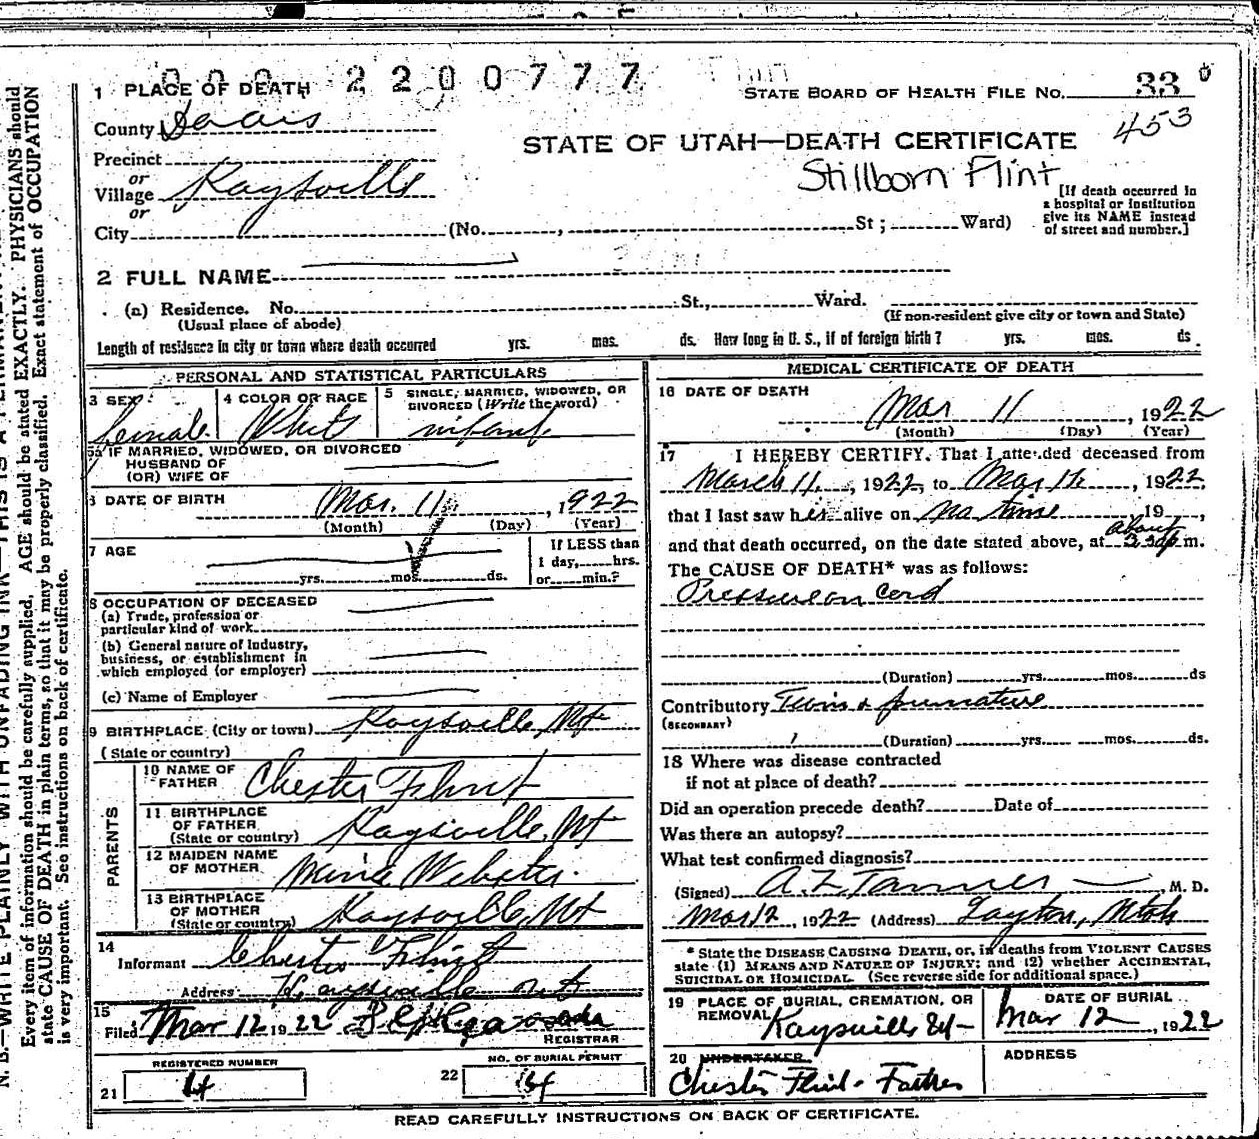 0 0 0 2 2 0 0 7 7 7
1 PLACE OF DEATH
STATE BOARD OF HEALTH FILE NO. 33
453
County Davis
STATE OF UTAH—DEATH CERTIFICATE
Precinct
or
Stillborn Flint
Village Kaysville
or
City (No. , St ; Ward)
[If death occurred in
a hospital or institution
give its NAME instead
of street and number.]
2 FULL NAME
(a) Residence. No. St., Ward.
(Usual place of abode) (If non-resident give city or town and State)
Length of residence in city or town where death occurred yrs. mos. ds. How long in U. S., if of foreign birth? yrs. mos. ds.
PERSONAL AND STATISTICAL PARTICULARS
3 SEX 4 COLOR OR RACE 5 SINGLE, MARRIED, WIDOWED, OR
DIVORCED (Write the word)
Female White infant
5a IF MARRIED, WIDOWED, OR DIVORCED
HUSBAND OF
(OR) WIFE OF
6 DATE OF BIRTH Mar. 11 , 1922
(Month) (Day) (Year)
7 AGE
yrs. mos. ds.
If LESS than
1 day, hrs.
or min.?
8 OCCUPATION OF DECEASED
(a) Trade, profession or
particular kind of work
(b) General nature of Industry,
business, or establishment in
which employed (or employer)
(c) Name of Employer
9 BIRTHPLACE (City or town) Kaysville, Ut
(State or country)
PARENTS
10 NAME OF
FATHER Chester Flint
11 BIRTHPLACE
OF FATHER
(State or country) Kaysville, Ut
12 MAIDEN NAME
OF MOTHER Webster
13 BIRTHPLACE
OF MOTHER
(State or country) Kaysville, Ut
14
Informant Chester Flint
Address Kaysville Ut
15
Filed Mar 12 1922
REGISTRAR
REGISTERED NUMBER NO. OF BURIAL PERMIT
21 22
MEDICAL CERTIFICATE OF DEATH
16 DATE OF DEATH
Mar 11 , 1922
(Month) (Day) (Year)
17 I HEREBY CERTIFY. That I attended deceased from
March 11 , 1922, to Mar 12 , 1922,
that I last saw her alive on no time 19 ,
about
and that death occurred, on the date stated above, at m.
The CAUSE OF DEATH* was as follows:
Pressure on cord
(Duration) yrs. mos. ds
Contributory Twins & premature
(SECONDARY)
(Duration) yrs. mos. ds.
18 Where was disease contracted
if not at place of death?
Did an operation precede death? Date of
Was there an autopsy?
What test confirmed diagnosis?
(Signed) A. Z. Tanner M. D.
Mar 12 , 1922 (Address) Layton, Utah
* State the DISEASE CAUSING DEATH, or, in deaths from VIOLENT CAUSES
state (1) MEANS AND NATURE OF INJURY; and (2) whether ACCIDENTAL,
SUICIDAL OR HOMICIDAL. (See reverse side for additional space.)
19 PLACE OF BURIAL, CREMATION, OR
REMOVAL Kaysville Ut
DATE OF BURIAL
Mar 12 , 1922
20 UNDERTAKER
Chester Flint - Father
ADDRESS
READ CAREFULLY INSTRUCTIONS ON BACK OF CERTIFICATE.
N. B.—WRITE PLAINLY WITH UNFADING INK—THIS IS A PERMANENT
Every item of information should be carefully supplied. AGE should be stated EXACTLY. PHYSICIANS should
state CAUSE OF DEATH in plain terms, so that it may be properly classified. Exact statement of OCCUPATION
is very important. See instructions on back of certificate.